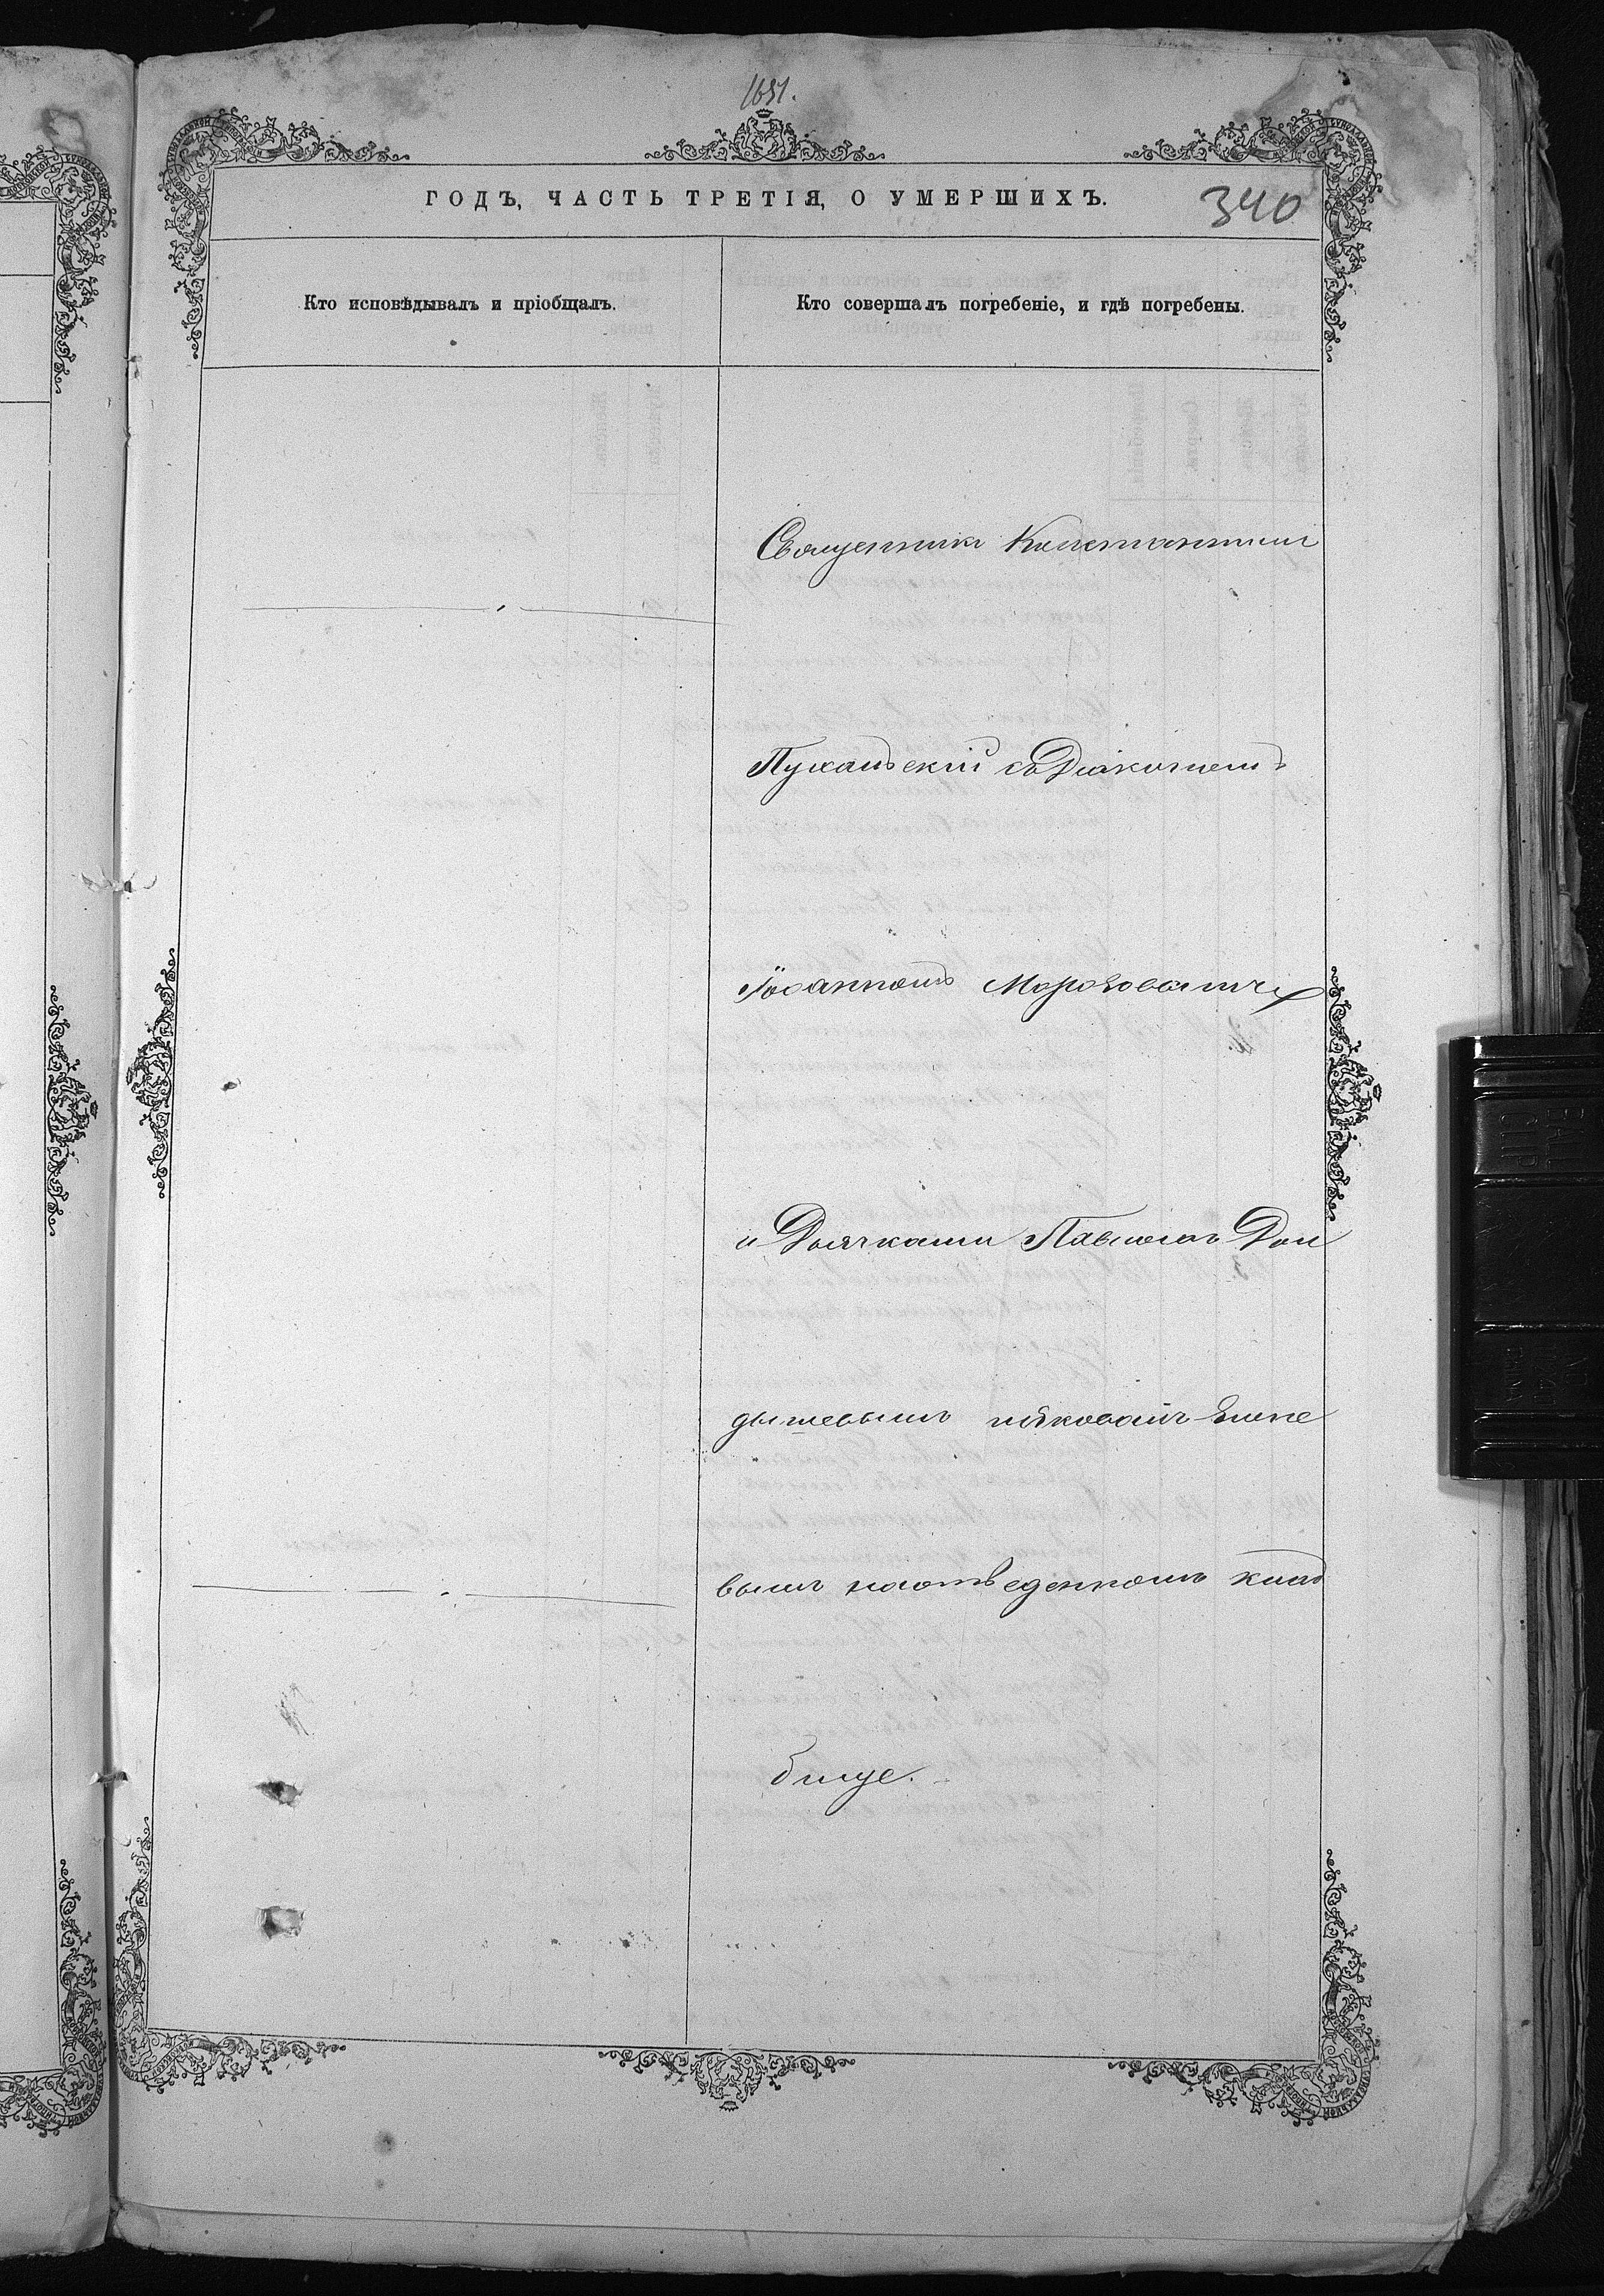 1651.
ГОДЪ, ЧАСТЬ ТРЕТІЯ, О УМЕРШИХЪ.
340
Кто исповѣдывалъ и пріобщалъ.
Кто совершалъ погребеніе, и гдѣ погребены.
Священникъ Констант
Пухальскій съ Діакономъ
Іоанномъ Морозов
и Дьячками Павломъ Дом
дышевымъ
вымъ наотведенномъ клад
бище.